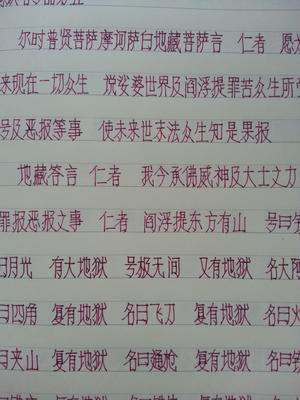 尔时普贤菩萨摩诃萨白地藏菩萨言 仁者 愿
来现在一切众生 说娑婆世界及阎浮提罪苦众生所
号及恶报等事 使未来世末法众生知是果报
地藏答言 仁者 我今承佛威神及大士之力
罪报恶报之事 仁者 阎浮提东方有山 号曰
日月光 有大地狱 号极无间 又有地狱 名大阿
曰四角 复有地狱 名曰飞刀 复有地狱 名曰火
曰夹山 复有地狱 名曰通枪 复有地狱 名曰